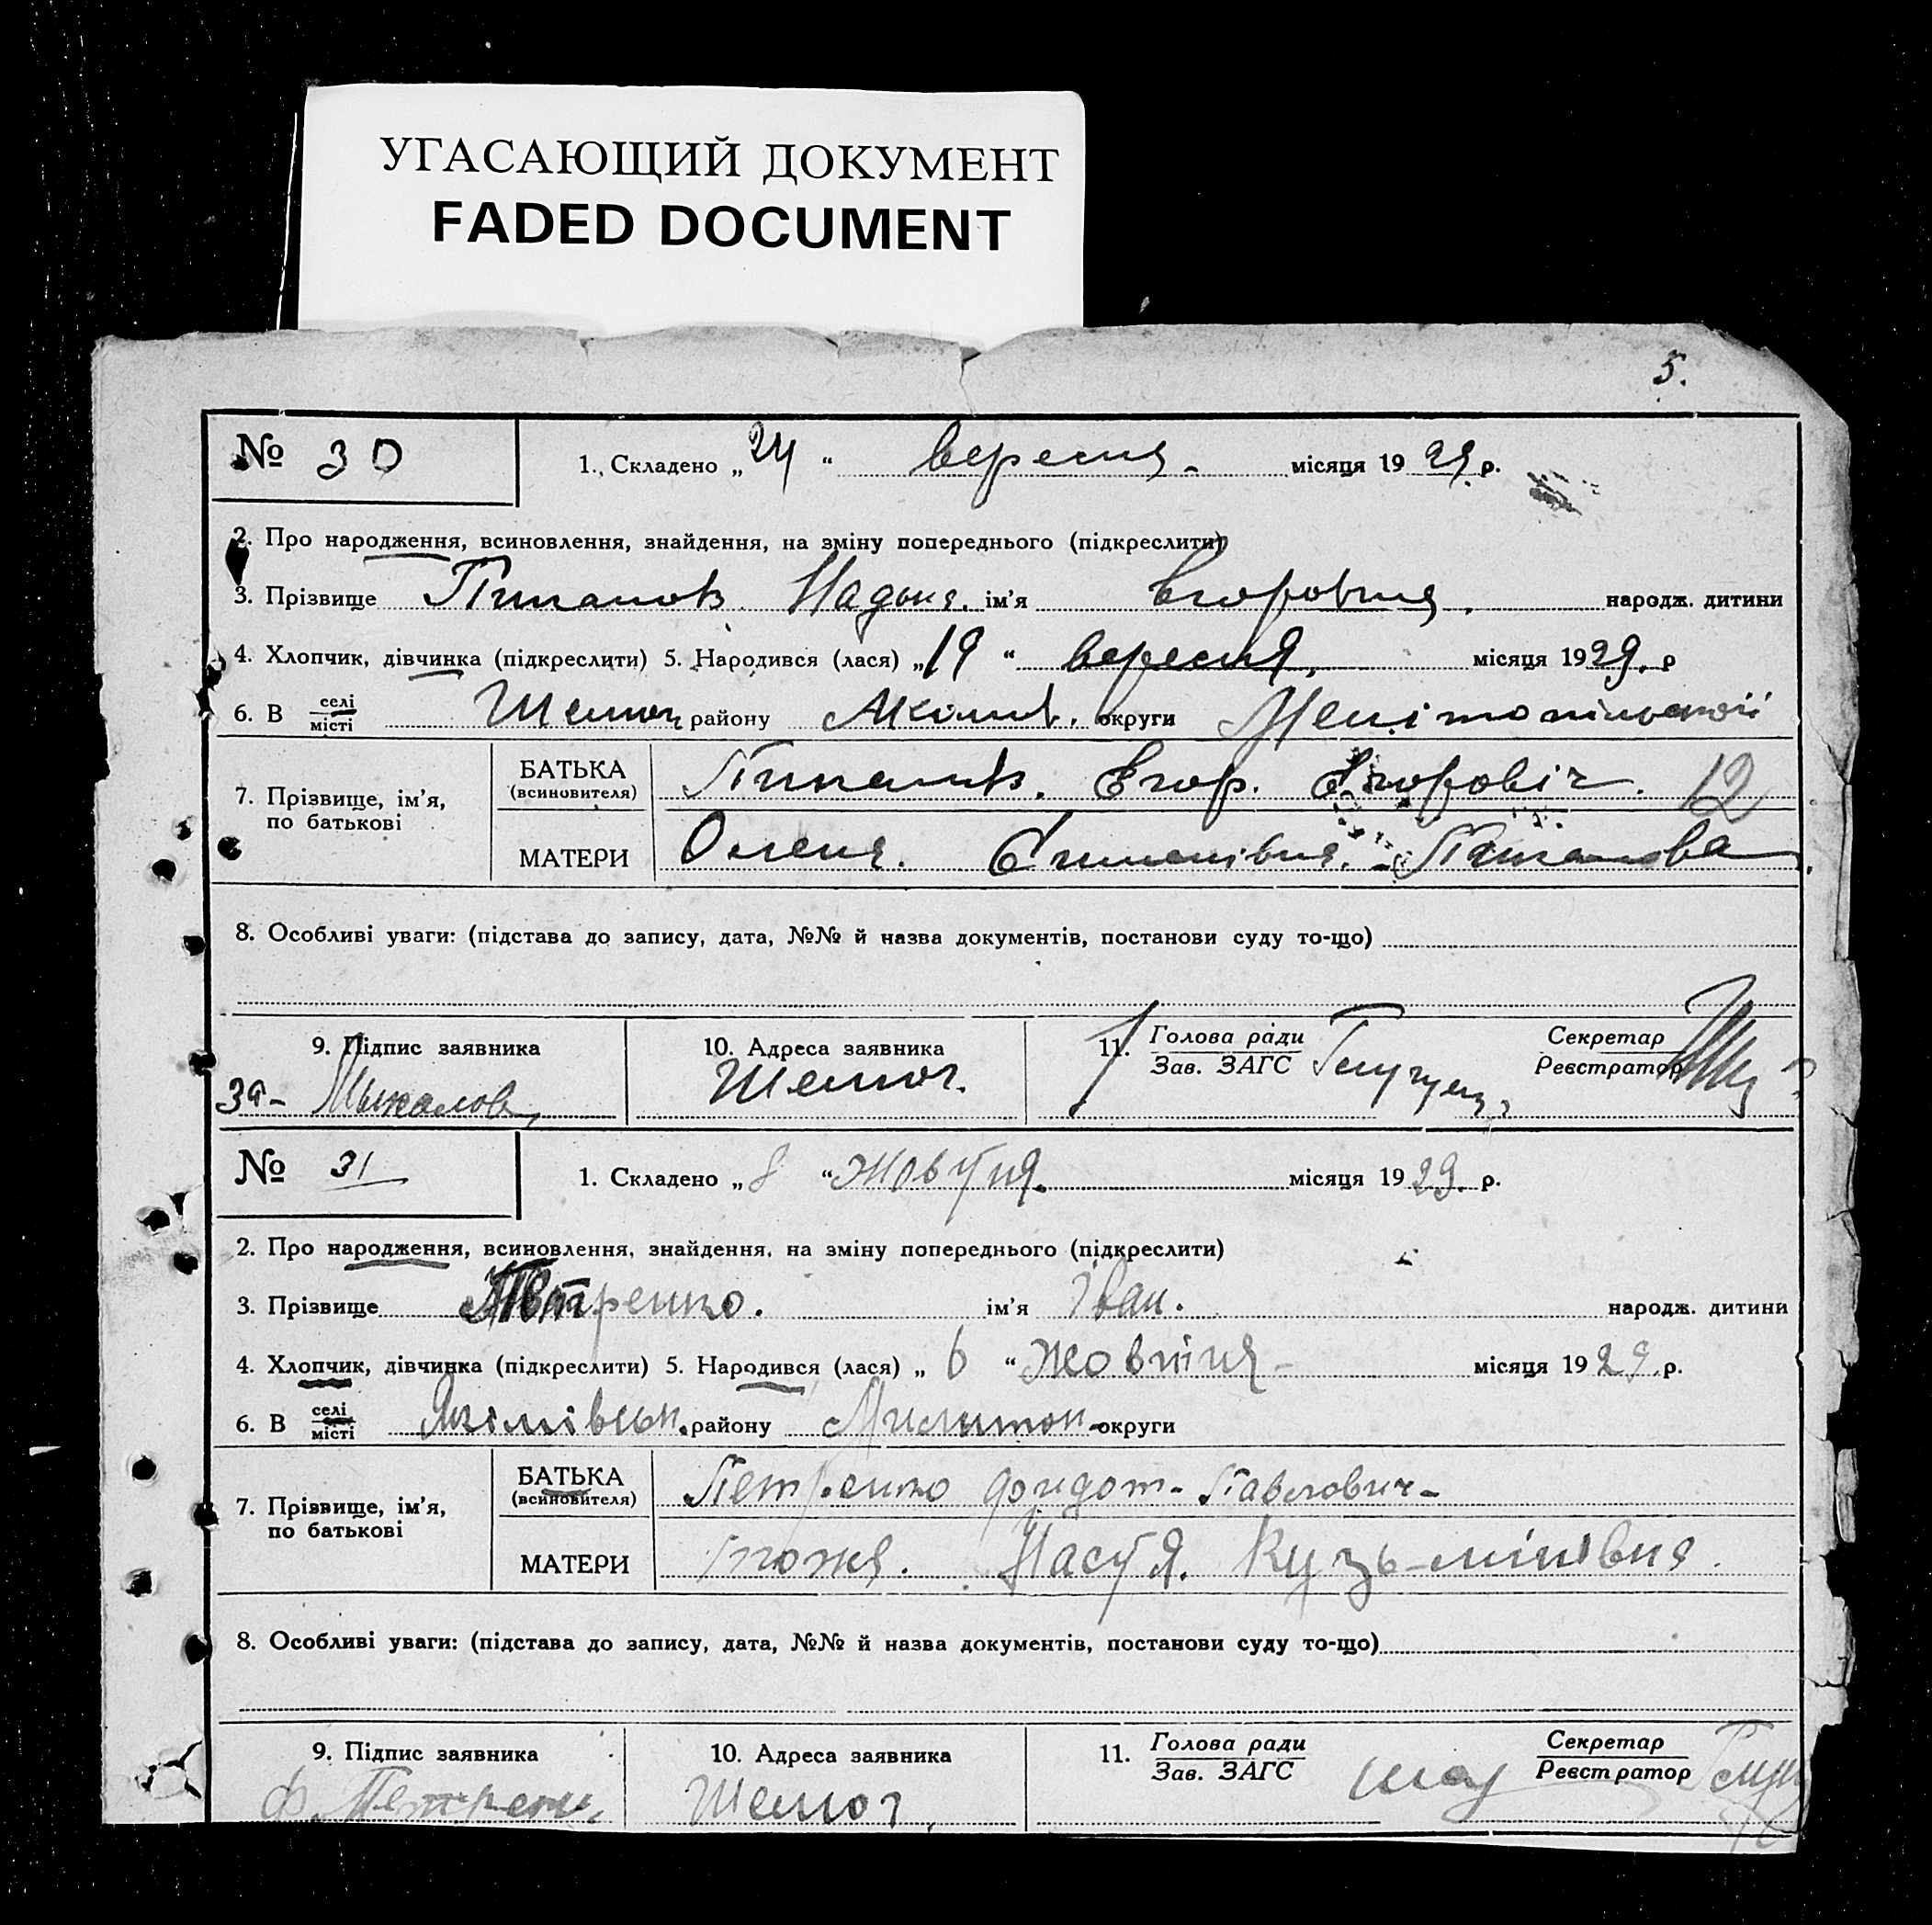 УГАСАЮЩИЙ ДОКУМЕНТ
FADED DOCUMENT
5.
№ 30
1. Складено „24“ вересня - місяця 1929 р.
2. Про народження, всиновлення, знайдення, на зміну попереднього (підкреслити)
3. Прізвище Надыня. ім'я Егоровная. народж. дитини
4. Хлопчик, дівчинка (підкреслити) 5. Народився (лася) „19“ вересня, місяця 1929. р
6. В селі місті Шелюг району Акимів. округи Мелітопільської
7. Прізвище, ім'я, по батькові
БАТЬКА (всиновителя) Егор. Егоровіч. 12
МАТЕРИ Олена.
8. Особливі уваги: (підстава до запису, дата, №№ й назва документів, постанови суду то-що)
9. Підпис заявника
10. Адреса заявника
11. Голова ради Зав. ЗАГС
Секретар Реєстратор
За-
Шелюг.
№ 31
1. Складено „8“ Жовтня. місяця 1929. р.
2. Про народження, всиновлення, знайдення, на зміну попереднього (підкреслити)
3. Прізвище Петренко. ім'я Іван. народж. дитини
4. Хлопчик, дівчинка (підкреслити) 5. Народився (лася) „6“ Жовтня - місяця 1929. р.
6. В селі місті Якімівськ. району Милитоп - округи
7. Прізвище, ім'я, по батькові
БАТЬКА (всиновителя) Петренко Фидот - Павлович -
МАТЕРИ Тоже. Настя. Кузь-мінівня.
8. Особливі уваги: (підстава до запису, дата, №№ й назва документів, постанови суду то-що)
9. Підпис заявника
10. Адреса заявника
11. Голова ради Зав. ЗАГС
Секретар Реєстратор
Ф. Петренк.
Шелюг.